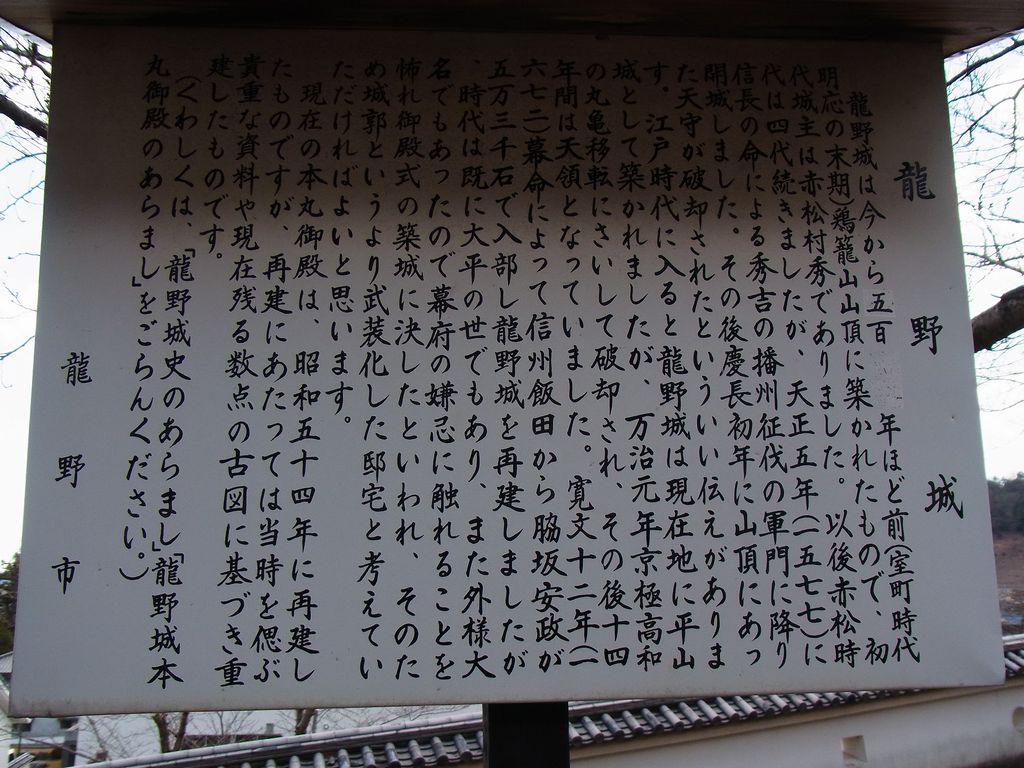 龍野城
龍野城は今から五百 年ほど前(室町時代
明応の末期)鶏籠山山頂に築かれたもので、初
代城主は赤松村秀でありました。以後赤松時
代は四代続きましたが、天正五年(一五七七)に
信長の命による秀吉の播州征伐の軍門に降り
開城しました。その後慶長初年に山頂にあっ
た天守が破却されたといういい伝えがありま
す。江戸時代に入ると龍野城は現在地に平山
城として築かれましたが、万治元年京極高和
の丸亀移転にさいして破却され、その後十四
年間は天領となっていました。寛文十二年(一
六七二)幕命によって信州飯田から脇坂安政が
五万三千石で入部し龍野城を再建しましたが
、時代は既に大平の世でもあり、また外様大
名でもあったので幕府の嫌忌に触れることを
怖れ御殿式の築城に決したといわれ、そのた
め城郭というより武装化した邸宅と考えてい
ただければよいと思います。
現在の本丸御殿は、昭和五十四年に再建し
たものですが、再建にあたっては当時を偲ぶ
貴重な資料や現在残る数点の古図に基づき重
建したものです。
(くわしくは、「龍野城史のあらまし」「龍野城本
丸御殿のあらまし」をごらんください。)
龍野市